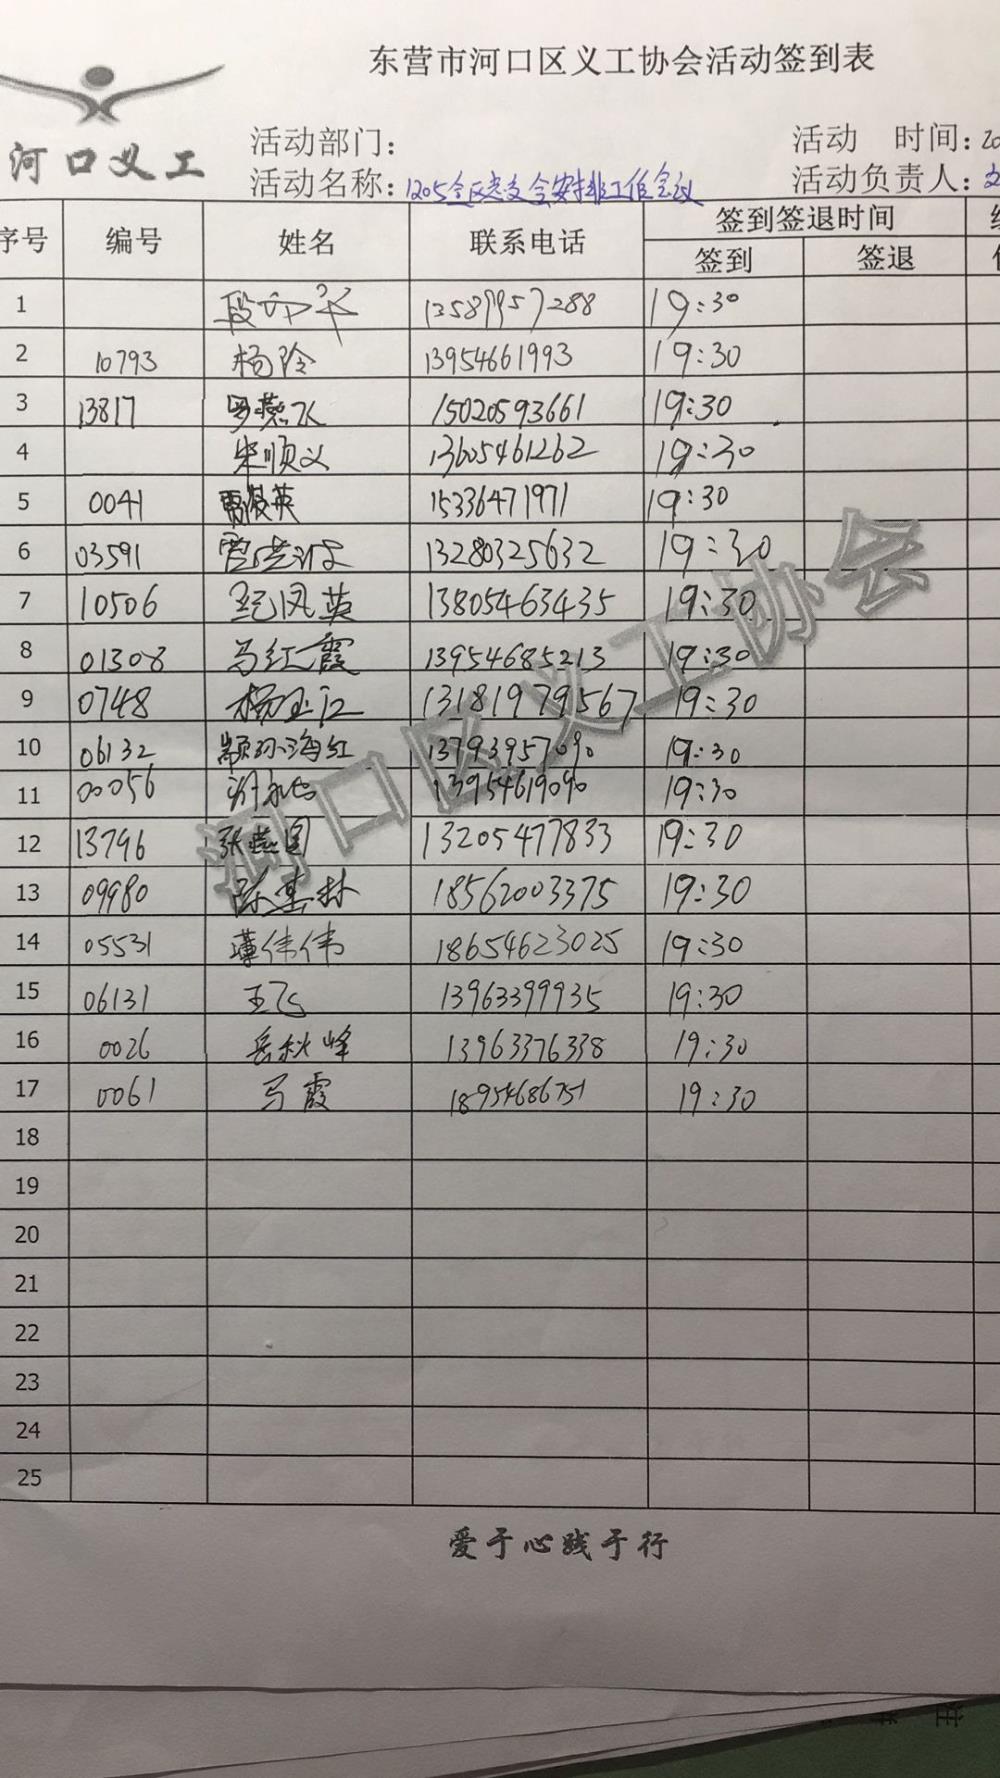 东营市河口区义工协会活动签到表
河口义工
活动部门： 活动 时间：20
活动名称：1205全区志交会安排工作会议 活动负责人：
序号 编号 姓名 联系电话 签到签退时间
签到 签退
1 13589957288 19:30
2 10793 杨玲 13954661993 19:30
3 13817 罗燕飞 15020593661 19:30
4 宋顺义 13605461262 19:30
5 0041 贾俊英 15336471971 19:30
6 03591 13280325632 19:30
7 10506 纪凤英 13805463435 19:30
8 01308 马红霞 13954685213 19:30
9 0748 杨玉江 13181979567 19:30
10 06132 颛孙海红 13793957090 19:30
11 00056 13954619090 19:30
12 13796 张燕国 13205477833 19:30
13 09980 陈基林 18562003375 19:30
14 05531 薄伟伟 18654623025 19:30
15 06131 王飞 13963399935 19:30
16 0026 岳秋峰 13963376338 19:30
17 0061 马霞 18954686751 19:30
18
19
20
21
22
23
24
25
河口区义工协会
爱于心践于行